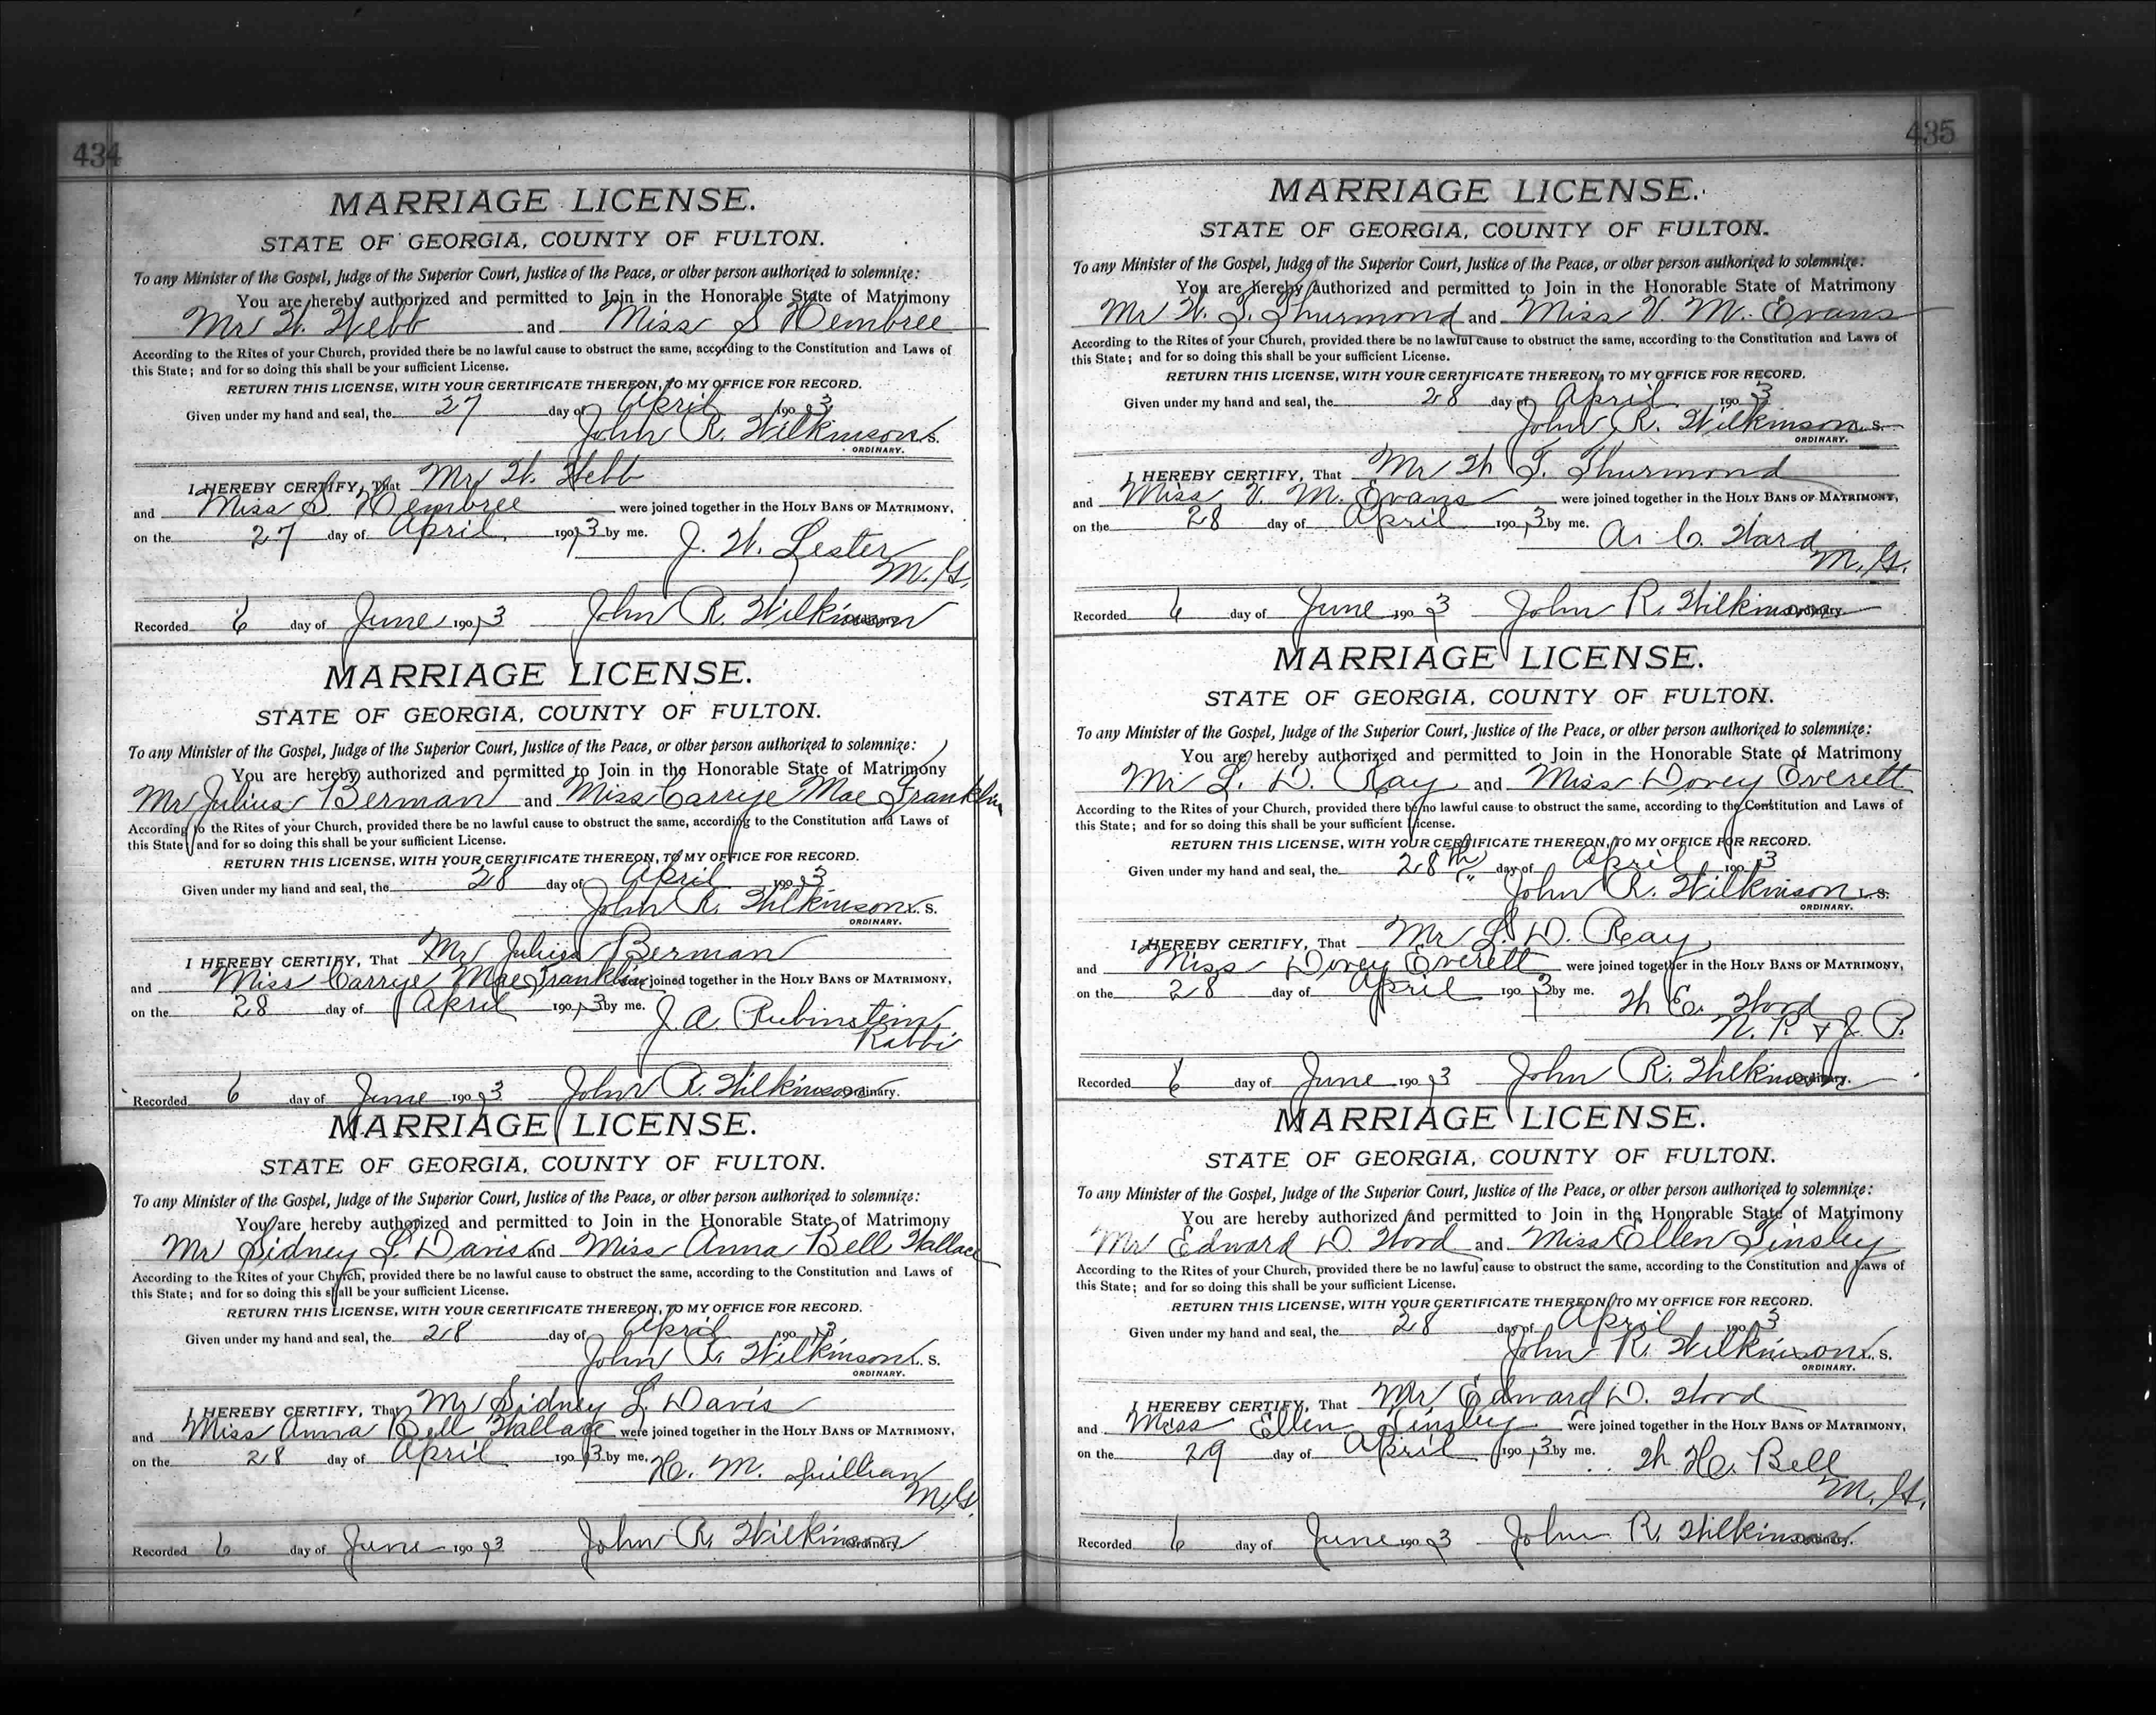 434
MARRIAGE LICENSE.
STATE OF GEORGIA, COUNTY OF FULTON.
To any Minister of the Gospel, Judge of the Superior Court, Justice of the Peace, or other person authorized to solemnize:
You are hereby authorized and permitted to Join in the Honorable State of Matrimony
Mr W. Webb and Miss S Hembree
According to the Rites of your Church, provided there be no lawful cause to obstruct the same, according to the Constitution and Laws of
this State; and for so doing this shall be your sufficient License.
RETURN THIS LICENSE, WITH YOUR CERTIFICATE THEREON, TO MY OFFICE FOR RECORD.
Given under my hand and seal, the 27 day of April 1903
John R. Wilkinson L. S.
ORDINARY.
I HEREBY CERTIFY, That Mr W. Webb
and Miss S. Hembree were joined together in the HOLY BANS OF MATRIMONY,
on the 27 day of April 1903 by me.
J. W. Lester
M. G.
Recorded 6 day of June 1903 John R. Wilkinson Ordinary.
MARRIAGE LICENSE.
STATE OF GEORGIA, COUNTY OF FULTON.
To any Minister of the Gospel, Judge of the Superior Court, Justice of the Peace, or other person authorized to solemnize:
You are hereby authorized and permitted to Join in the Honorable State of Matrimony
Mr Julius Berman and Miss Carrye Mae Franklin
According to the Rites of your Church, provided there be no lawful cause to obstruct the same, according to the Constitution and Laws of
this State; and for so doing this shall be your sufficient License.
RETURN THIS LICENSE, WITH YOUR CERTIFICATE THEREON, TO MY OFFICE FOR RECORD.
Given under my hand and seal, the 28 day of April 1903
John R. Wilkinson L. S.
ORDINARY.
I HEREBY CERTIFY, That Mr Julius Berman
and Miss Carrye Mae Franklin were joined together in the HOLY BANS OF MATRIMONY,
on the 28 day of April 1903 by me.
J. A. Rubinstein
Rabbi
Recorded 6 day of June 1903 John R. Wilkinson Ordinary.
MARRIAGE LICENSE.
STATE OF GEORGIA, COUNTY OF FULTON.
To any Minister of the Gospel, Judge of the Superior Court, Justice of the Peace, or other person authorized to solemnize:
You are hereby authorized and permitted to Join in the Honorable State of Matrimony
Mr Sidney L. Davis and Miss Anna Bell Wallace
According to the Rites of your Church, provided there be no lawful cause to obstruct the same, according to the Constitution and Laws of
this State; and for so doing this shall be your sufficient License.
RETURN THIS LICENSE, WITH YOUR CERTIFICATE THEREON, TO MY OFFICE FOR RECORD.
Given under my hand and seal, the 28 day of April 1903
John R. Wilkinson L. S.
ORDINARY.
I HEREBY CERTIFY, That Mr Sidney L. Davis
and Miss Anna Bell Wallace were joined together in the HOLY BANS OF MATRIMONY,
on the 28 day of April 1903 by me.
H. M. Quillian
M. G.
Recorded 6 day of June 1903 John R. Wilkinson Ordinary.
435
MARRIAGE LICENSE.
STATE OF GEORGIA, COUNTY OF FULTON.
To any Minister of the Gospel, Judge of the Superior Court, Justice of the Peace, or other person authorized to solemnize:
You are hereby authorized and permitted to Join in the Honorable State of Matrimony
Mr W. T. Thurmond and Miss V. M. Evans
According to the Rites of your Church, provided there be no lawful cause to obstruct the same, according to the Constitution and Laws of
this State; and for so doing this shall be your sufficient License.
RETURN THIS LICENSE, WITH YOUR CERTIFICATE THEREON, TO MY OFFICE FOR RECORD.
Given under my hand and seal, the 28 day of April 1903
John R. Wilkinson L. S.
ORDINARY.
I HEREBY CERTIFY, That Mr W. T. Thurmond
and Miss V. M. Evans were joined together in the HOLY BANS OF MATRIMONY,
on the 28 day of April 1903 by me.
A. C. Ward
M. G.
Recorded 6 day of June 1903 John R. Wilkinson Ordinary.
MARRIAGE LICENSE.
STATE OF GEORGIA, COUNTY OF FULTON.
To any Minister of the Gospel, Judge of the Superior Court, Justice of the Peace, or other person authorized to solemnize:
You are hereby authorized and permitted to Join in the Honorable State of Matrimony
Mr L. D. Ray and Miss Dovey Everett
According to the Rites of your Church, provided there be no lawful cause to obstruct the same, according to the Constitution and Laws of
this State; and for so doing this shall be your sufficient License.
RETURN THIS LICENSE, WITH YOUR CERTIFICATE THEREON, TO MY OFFICE FOR RECORD.
Given under my hand and seal, the 28th day of April 1903
John R. Wilkinson L. S.
ORDINARY.
I HEREBY CERTIFY, That Mr L. D. Ray
and Miss Dovey Everett were joined together in the HOLY BANS OF MATRIMONY,
on the 28 day of April 1903 by me.
W. E. Wood
N. P. & J. P.
Recorded 6 day of June 1903 John R. Wilkinson Ordinary.
MARRIAGE LICENSE.
STATE OF GEORGIA, COUNTY OF FULTON.
To any Minister of the Gospel, Judge of the Superior Court, Justice of the Peace, or other person authorized to solemnize:
You are hereby authorized and permitted to Join in the Honorable State of Matrimony
Mr Edward D. Wood and Miss Ellen Tinsley
According to the Rites of your Church, provided there be no lawful cause to obstruct the same, according to the Constitution and Laws of
this State; and for so doing this shall be your sufficient License.
RETURN THIS LICENSE, WITH YOUR CERTIFICATE THEREON, TO MY OFFICE FOR RECORD.
Given under my hand and seal, the 28 day of April 1903
John R. Wilkinson L. S.
ORDINARY.
I HEREBY CERTIFY, That Mr Edward D. Wood
and Miss Ellen Tinsley were joined together in the HOLY BANS OF MATRIMONY,
on the 29 day of April 1903 by me.
W. H. Bell
M. G.
Recorded 6 day of June 1903 John R. Wilkinson Ordinary.